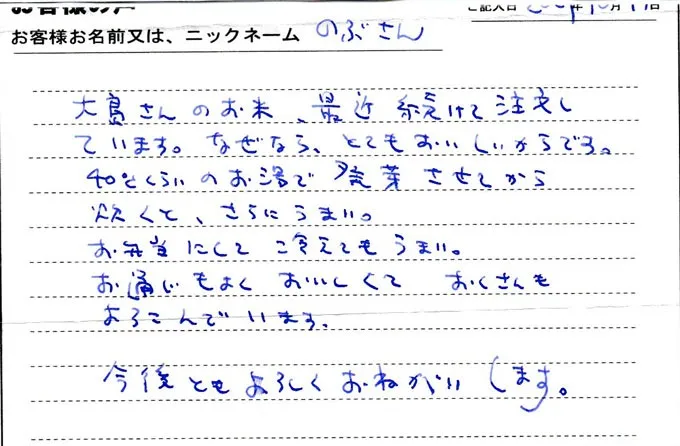 お客様の声
ご記入日 2009年10月19日
お客様お名前又は、ニックネーム のぶさん
大島さんのお米、最近続けて注文し
ています。なぜなら、とてもおいしいからです。
40℃くらいのお湯で発芽させてから
炊くと、さらにうまい。
お弁当にして冷えてもうまい。
お通じもよくおいしくて おくさんも
よろこんでいます。
今後ともよろしくおねがいします。